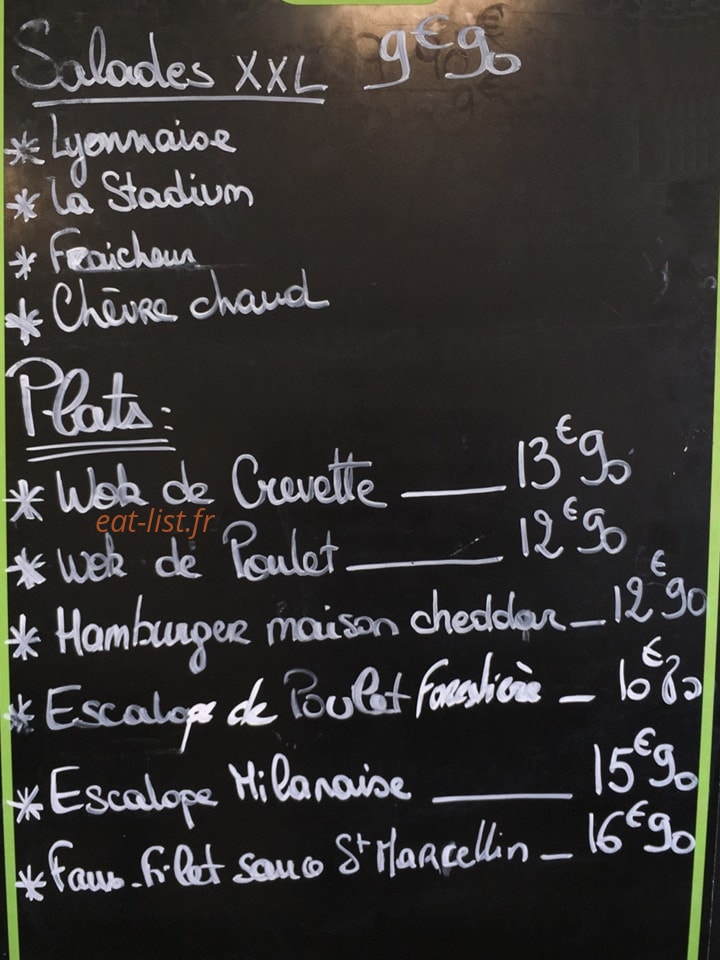 Salades XXL 9€90
* Lyonnaise
* La Stadium
* Fraicheur
* Chèvre chaud
Plats:
* Wok de Crevette ____ 13€90
eat-list.fr
* Wok de Poulet ____ 12€90
* Hamburger maison cheddar _ 12€90
* Escalope de Poulet Forestière _ 10€80
* Escalope Milanaise ____ 15€90
* Faux-filet sauce St Marcellin _ 16€90